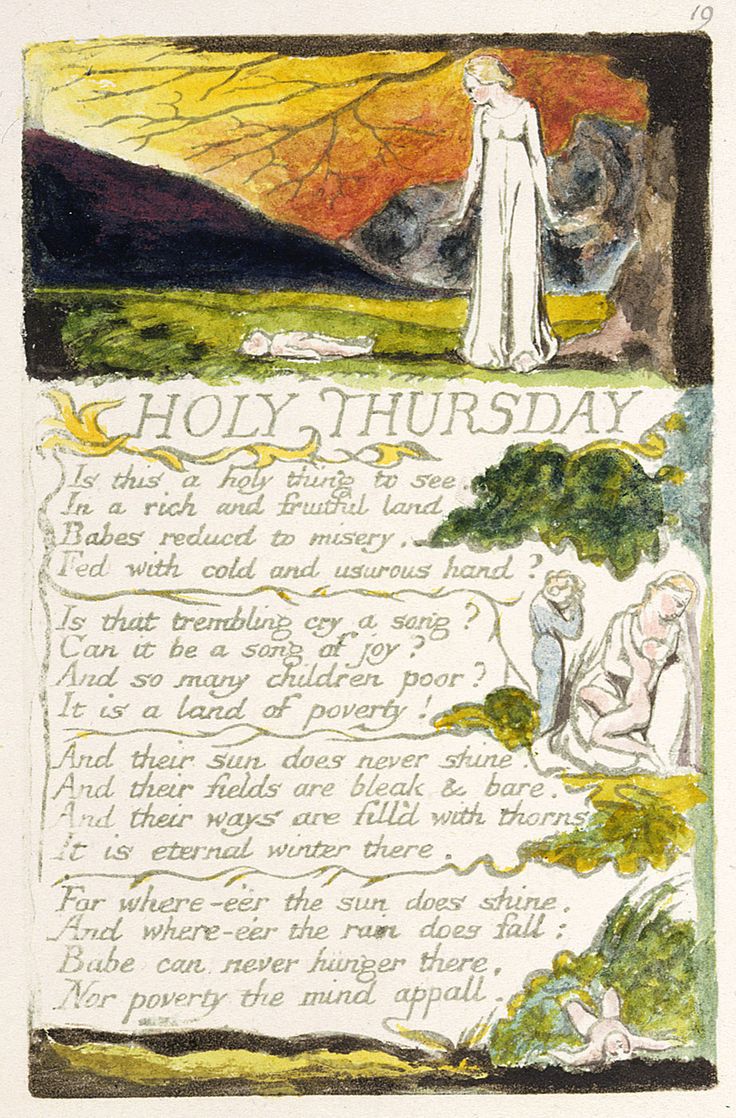 19
HOLY THURSDAY
Is this a holy thing to see.
In a rich and fruitful land.
Babes reducd to misery.
Fed with cold and usurous hand?
Is that trembling cry a song?
Can it be a song of joy?
And so many children poor?
It is a land of poverty!
And their sun does never shine.
And their fields are bleak & bare.
And their ways are fill'd with thorns
It is eternal winter there.
For where-e'er the sun does shine.
And where-e'er the rain does fall:
Babe can never hunger there,
Nor poverty the mind appall.